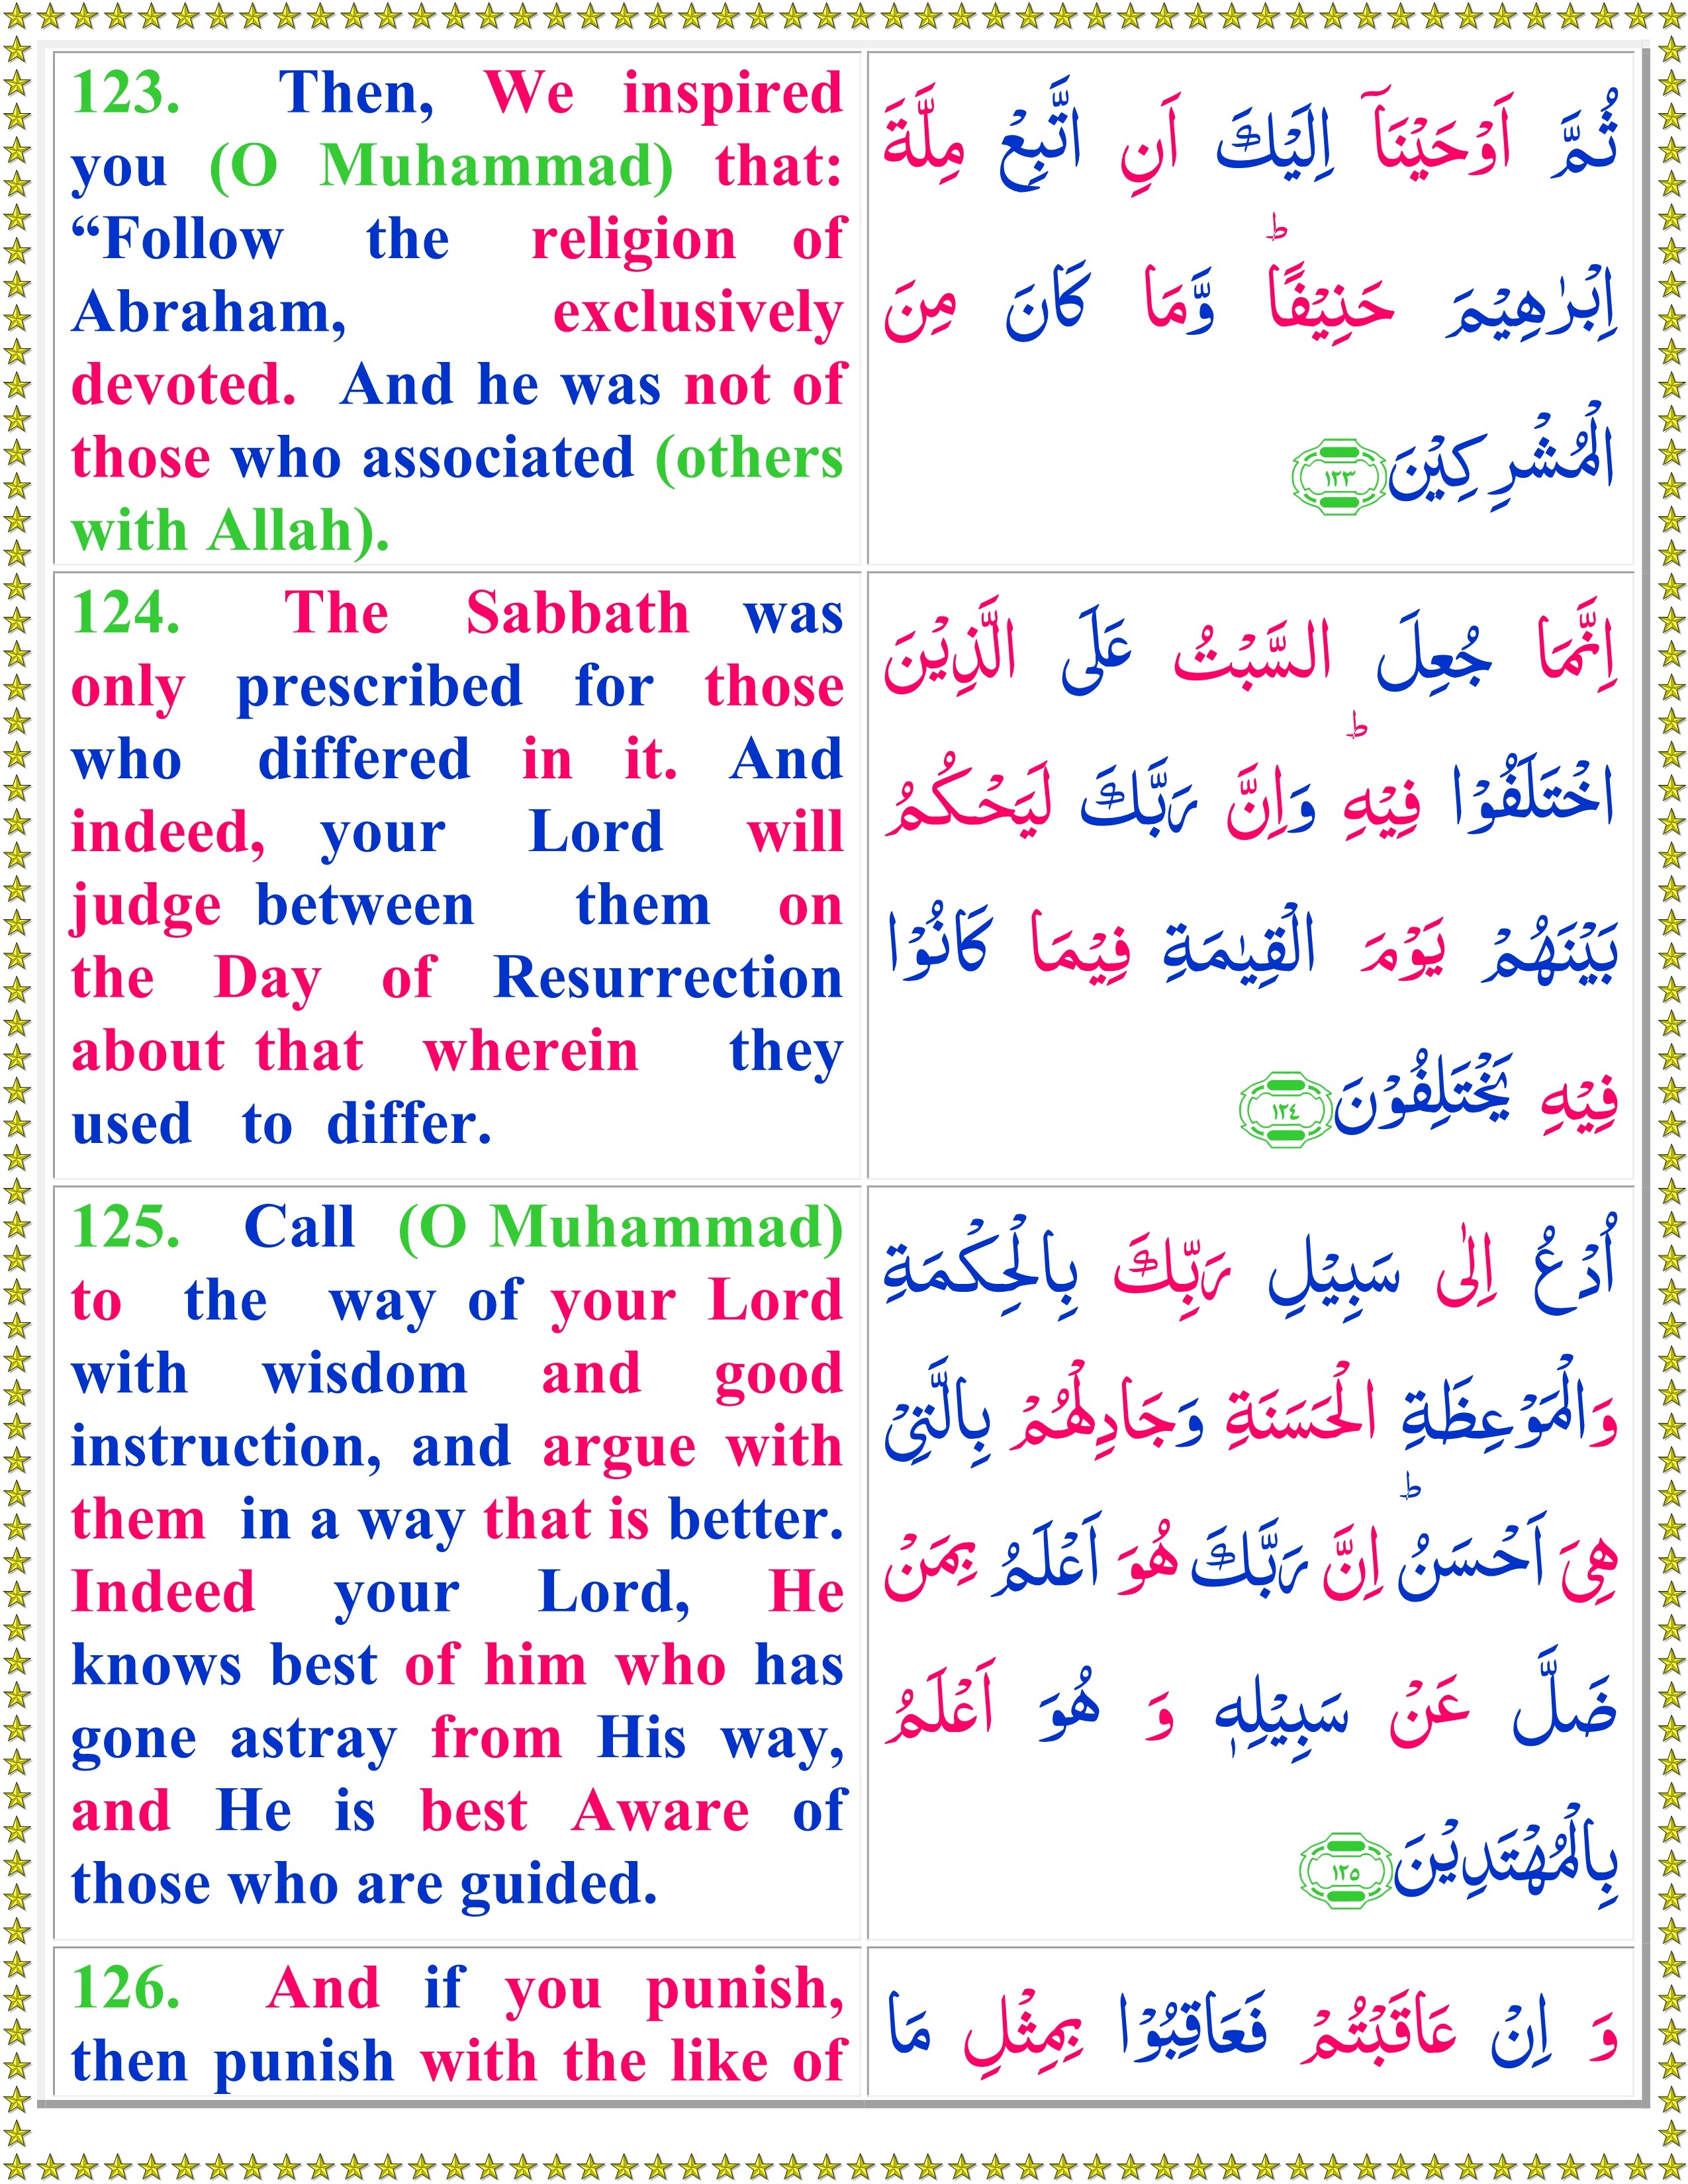 123. Then, We inspired
you (O Muhammad) that:
“Follow the religion of
Abraham, exclusively
devoted. And he was not of
those who associated (others
with Allah).
ثُمَّ اَوْحَيْنَآ اِلَيْكَ اَنِ اتَّبِعْ مِلَّةَ
اِبْرٰهِيْمَ حَنِيْفًاؕ وَّمَا كَانَ مِنَ
الْمُشْرِكِيْنَ ١٢٣
124. The Sabbath was
only prescribed for those
who differed in it. And
indeed, your Lord will
judge between them on
the Day of Resurrection
about that wherein they
used to differ.
اِنَّمَا جُعِلَ السَّبْتُ عَلَى الَّذِيْنَ
اخْتَلَفُوْا فِيْهِؕ وَاِنَّ رَبَّكَ لَيَحْكُمُ
بَيْنَهُمْ يَوْمَ الْقِيٰمَةِ فِيْمَا كَانُوْا
فِيْهِ يَخْتَلِفُوْنَ ١٢٤
125. Call (O Muhammad)
to the way of your Lord
with wisdom and good
instruction, and argue with
them in a way that is better.
Indeed your Lord, He
knows best of him who has
gone astray from His way,
and He is best Aware of
those who are guided.
اُدْعُ اِلٰى سَبِيْلِ رَبِّكَ بِالْحِكْمَةِ
وَالْمَوْعِظَةِ الْحَسَنَةِ وَجَادِلْهُمْ بِالَّتِىْ
هِىَ اَحْسَنُؕ اِنَّ رَبَّكَ هُوَ اَعْلَمُ بِمَنْ
ضَلَّ عَنْ سَبِيْلِهٖ وَ هُوَ اَعْلَمُ
بِالْمُهْتَدِيْنَ ١٢٥
126. And if you punish,
then punish with the like of
وَ اِنْ عَاقَبْتُمْ فَعَاقِبُوْا بِمِثْلِ مَا